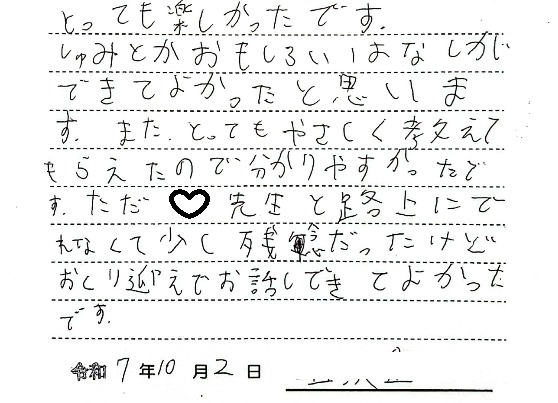 とっても楽しかったです.
しゅみとかおもしろいはなしがじ
できてよかったと思いま
す. また. とってもやさしく考えて
もらえたので分かりやすかったで
す. ただ ♡ 先生と路上にで
れなくて少し残念だったけど
おくり迎えでお話しできてよかった
です.
令和 7 年 10 月 2 日